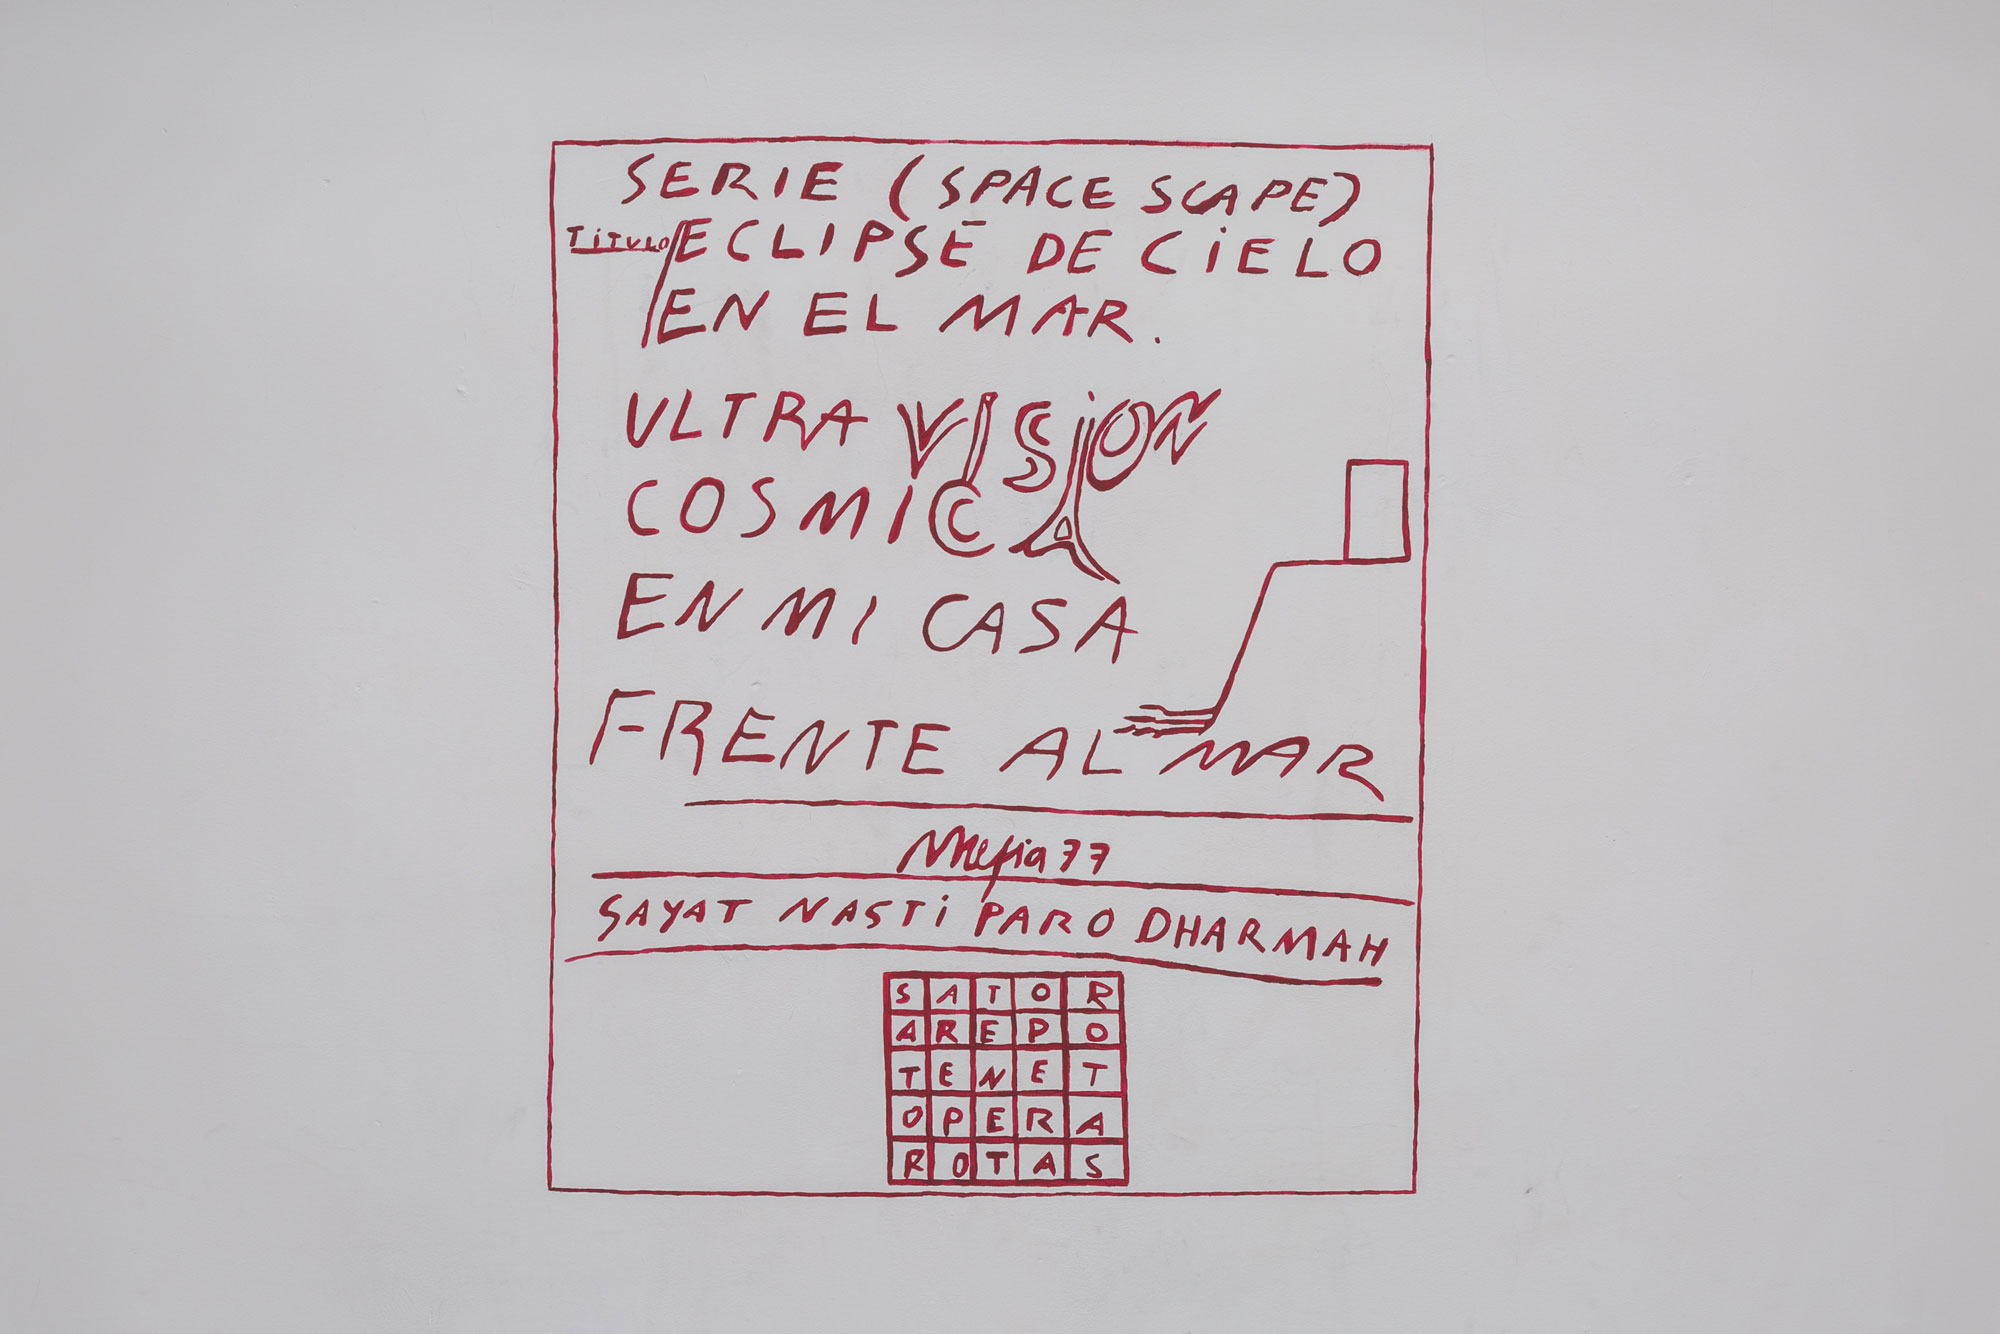 SERIE (SPACE SCAPE)
TiTULO ECLIPSE DE CiELO
EN EL MAR.
ULTRA VISiON
COSMICA
EN MI CASA
FRENTE AL MAR
Mejia 77
SAYAT NASTi PARO DHARMAH
S A T O R
A R E P O
T E N E T
O P E R A
R O T A S